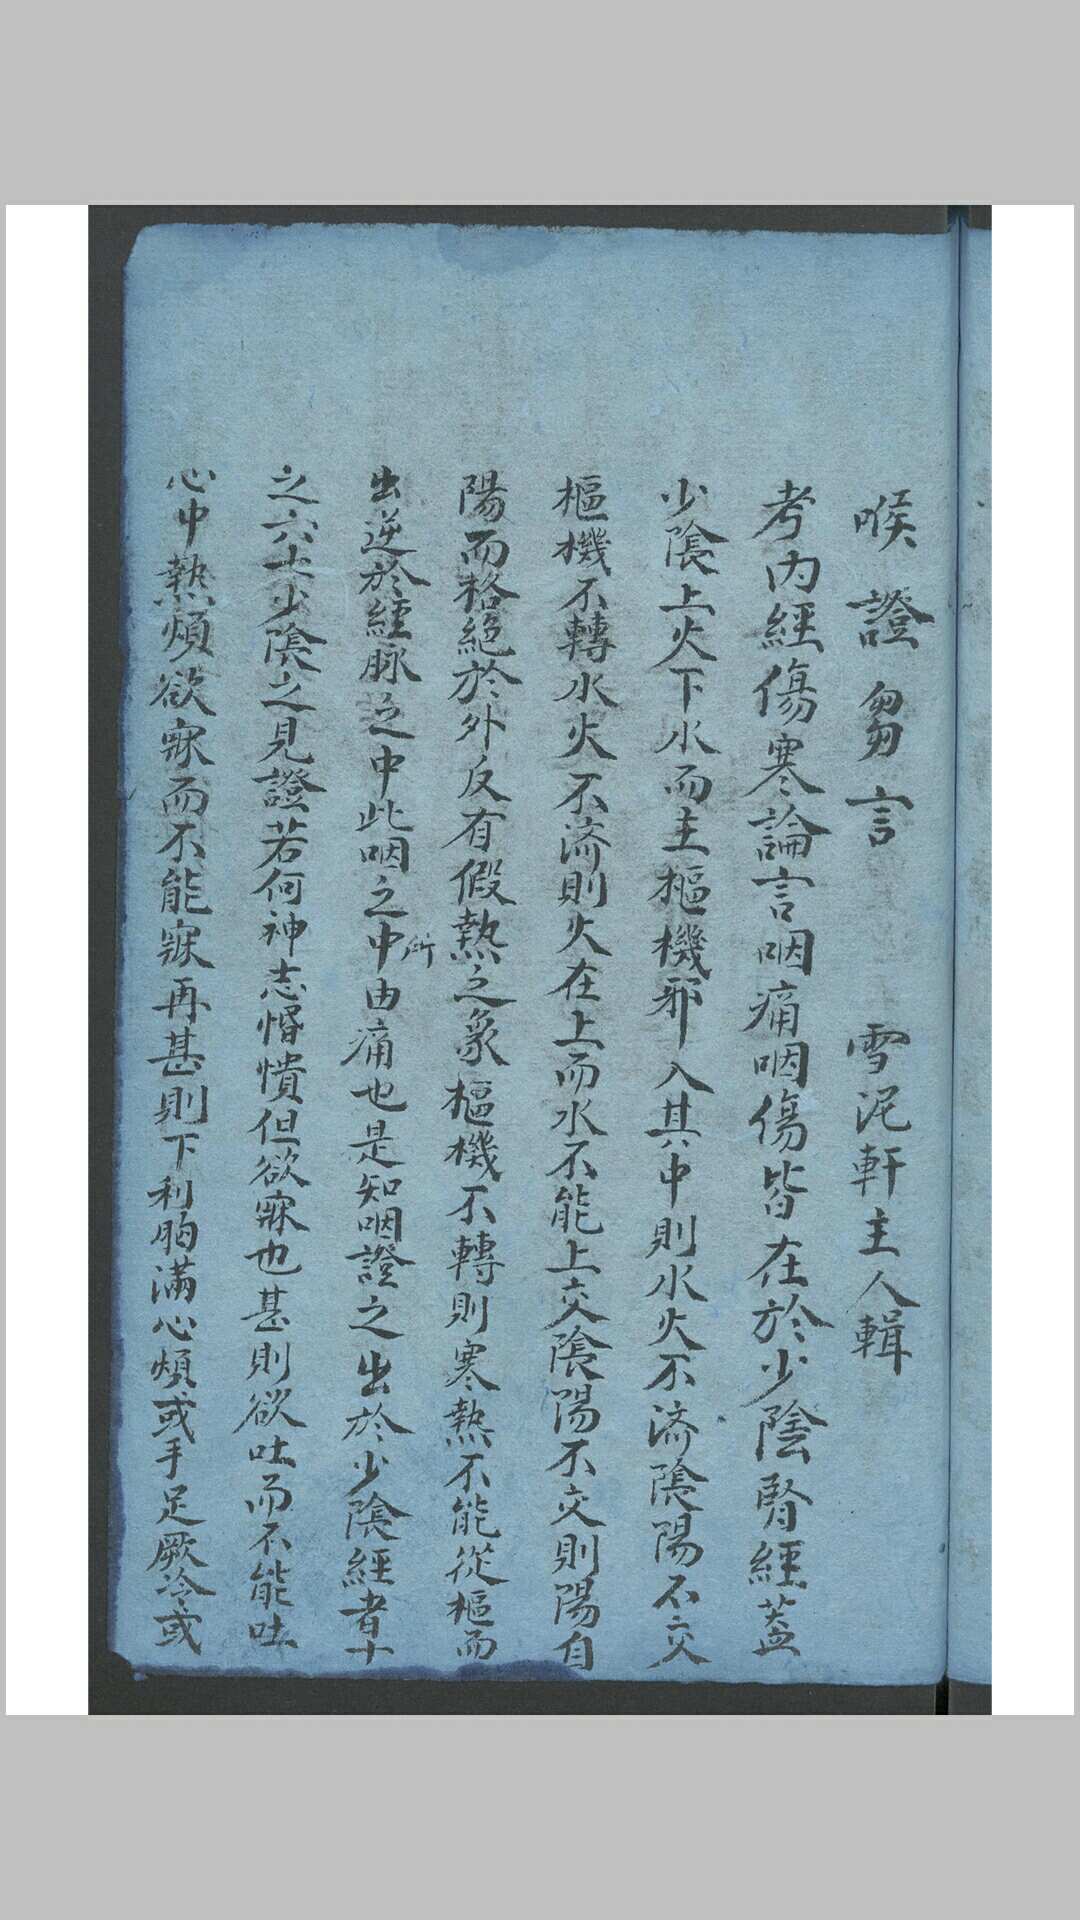 喉證芻言　雪泥軒主人輯
考內經傷寒論言咽痛咽傷皆在於少陰腎經蓋
少陰上火下水而主樞機邪入其中則水火不濟陰陽不交
樞機不轉水火不濟則火在上而水不能上交陰陽不交則陽自
陽而格絕於外反有假熱之象樞機不轉則寒熱不能從樞而
出逆於經脉之中此咽之中所由痛也是知咽證之出於少陰經者十
之六七少陰之見證若何神志惛憒但欲寐也甚則欲吐而不能吐
心中熱煩欲寐而不能寐再甚則下利胸滿心煩或手足厥冷或